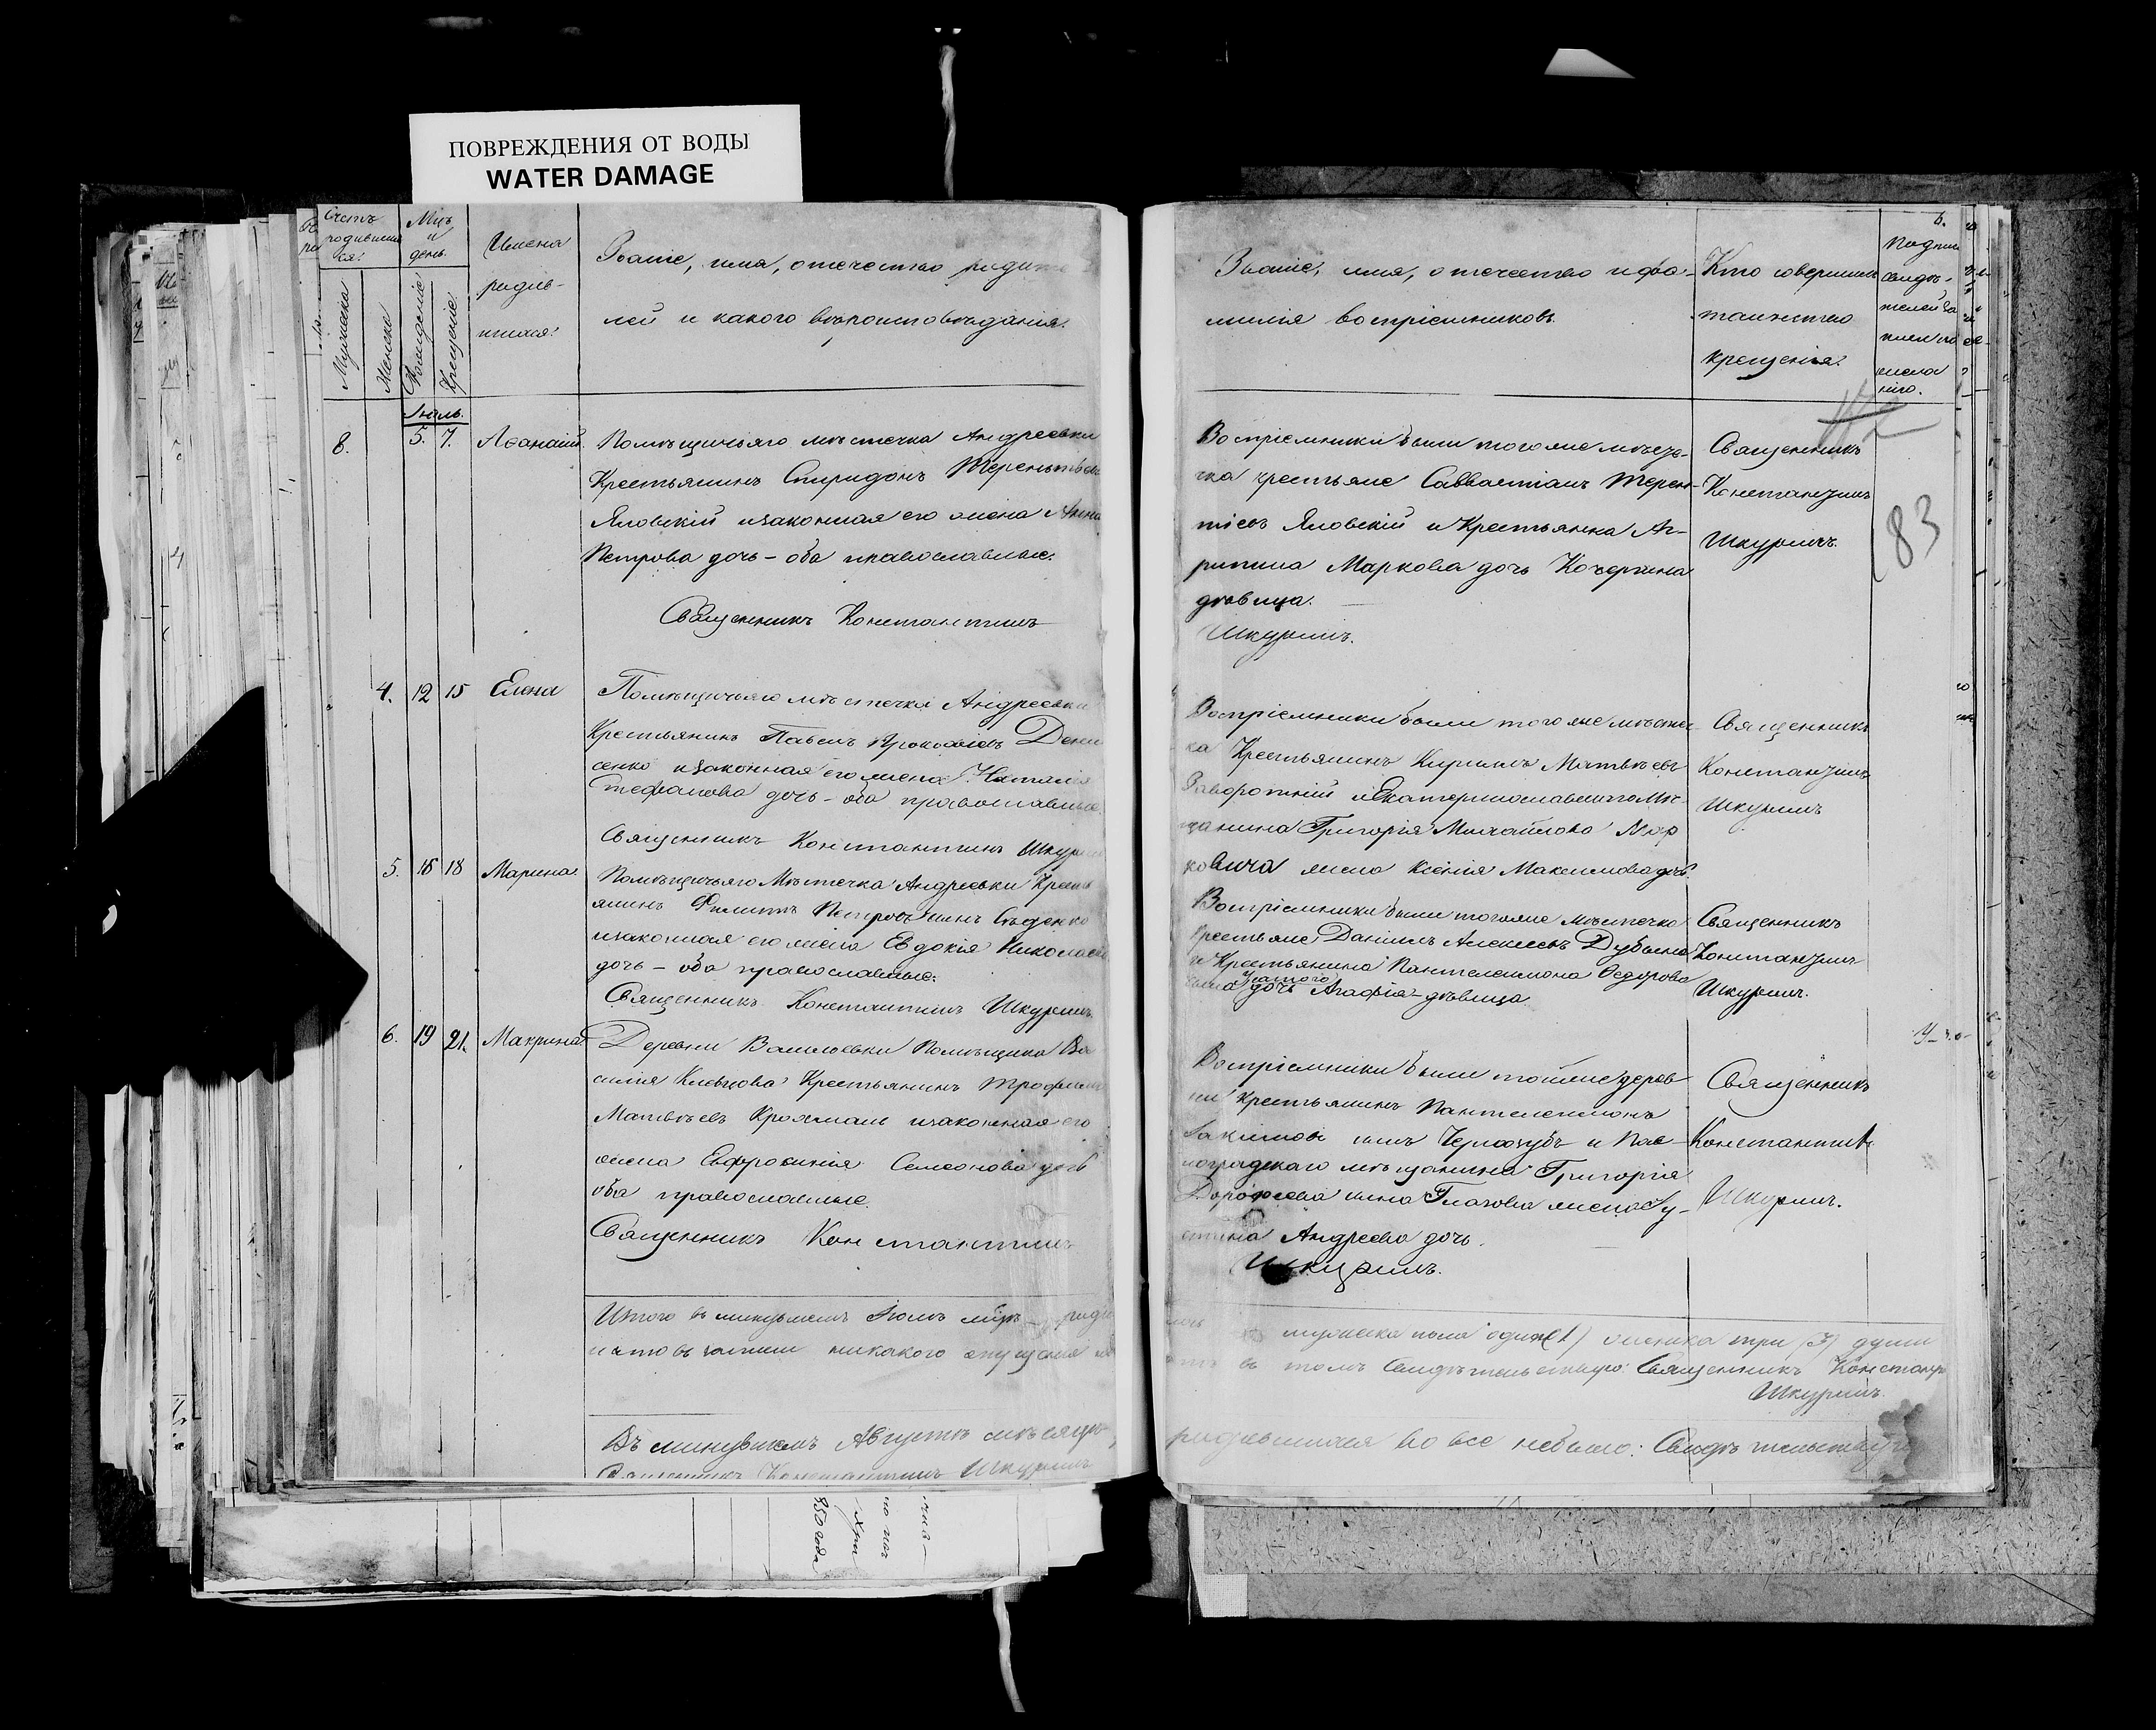 ПОВРЕЖДЕНИЯ ОТ ВОДЫ
WATER DAMAGE
Счетъ
родивших
ся.
Мцъ
и
день.
Мужеска
Женска
Рожденіе
Крещеніе
Имена
родив-
шихся.
Званіе, имя, отечество родите
лей и какого вѣроисповѣданія.
Іюль.
8. 5. 7. Аѳанасій.
Помѣщичьяго мѣстечка Андреевки
Крестьянинъ Спиридонъ Терентьевъ
Яловскій и законная его жена Анна
Петрова дочь - оба православные.
Священникъ Константинъ
4. 12 15 Елена
Помѣщичьяго мѣстечка Андреевки
Крестьянинъ Павелъ Прокофіевъ Дени
сенко и законная его жена Наталія
Стефанова дочь - оба православные.
Священникъ Константинъ Шкурин
5. 16 18 Марина
Помѣщичьяго Мѣстечка Андреевки Кресть
янинъ Филиппъ Петровъ сынъ
и законная его жена Евдокія Николаева
дочь - оба православные.
Священникъ Константинъ Шкуринъ
6. 19 21. Макрина
Деревни Васильевки Помѣщика Ва
силія Крестьянинъ Трофимъ
Матвѣевъ Крохмаль и законная его
жена Евфросинія Семенова дочь
оба православные.
Священникъ Константинъ
Итого въ минувшемъ Іюлѣ мцѣ роди
и что въ записи никакого опущенія
Въ минувшемъ Августѣ мѣсяцѣ
Священникъ Константинъ Шкуринъ
850 года
Званіе, имя, отечество и фа-
милія воспріемниковъ.
Кто совершилъ
таинство
крещенія.
Воспріемники были того же мѣсте-
чка крестьяне Савватіанъ Терен-
тіевъ Яловскій и Крестьянка Аг-
рипина Маркова дочь Кочергина
дѣвица.
Шкуринъ.
Священникъ
Константинъ
Шкуринъ.
83
Воспріемники были того же мѣстеч-
ка Крестьянинъ Кириллъ Матвѣевъ
Заворотній и Екатеринославскаго Мѣ-
щанина Григорія Михайлова Мар
ковича жена Ксенія Максимова дочь.
Священникъ
Константинъ
Шкуринъ
Воспріемники были того же мѣстечка
Крестьяне, Даніилъ Алексѣевъ
и Крестьянина Пантелеимона Ѳедорова
дочь Агафія - дѣвица
Священникъ
Константинъ
Шкуринъ.
Воспріемники были той же дерев
ни Крестьянинъ Пантелеимонъ
Іакимовъ сынъ и Пав-
лоградскаго мѣщанина Григорія
Дорофеева сына жена Іу-
стина Андреева дочь.
Шкуринъ.
Священникъ
Константинъ
Шкуринъ.
мужеска пола одинъ (1) женска три (3) души
въ томъ Свидѣтельствую: Священникъ Констант
Шкуринъ.
родившихся во все небыло: Свидѣтельствую